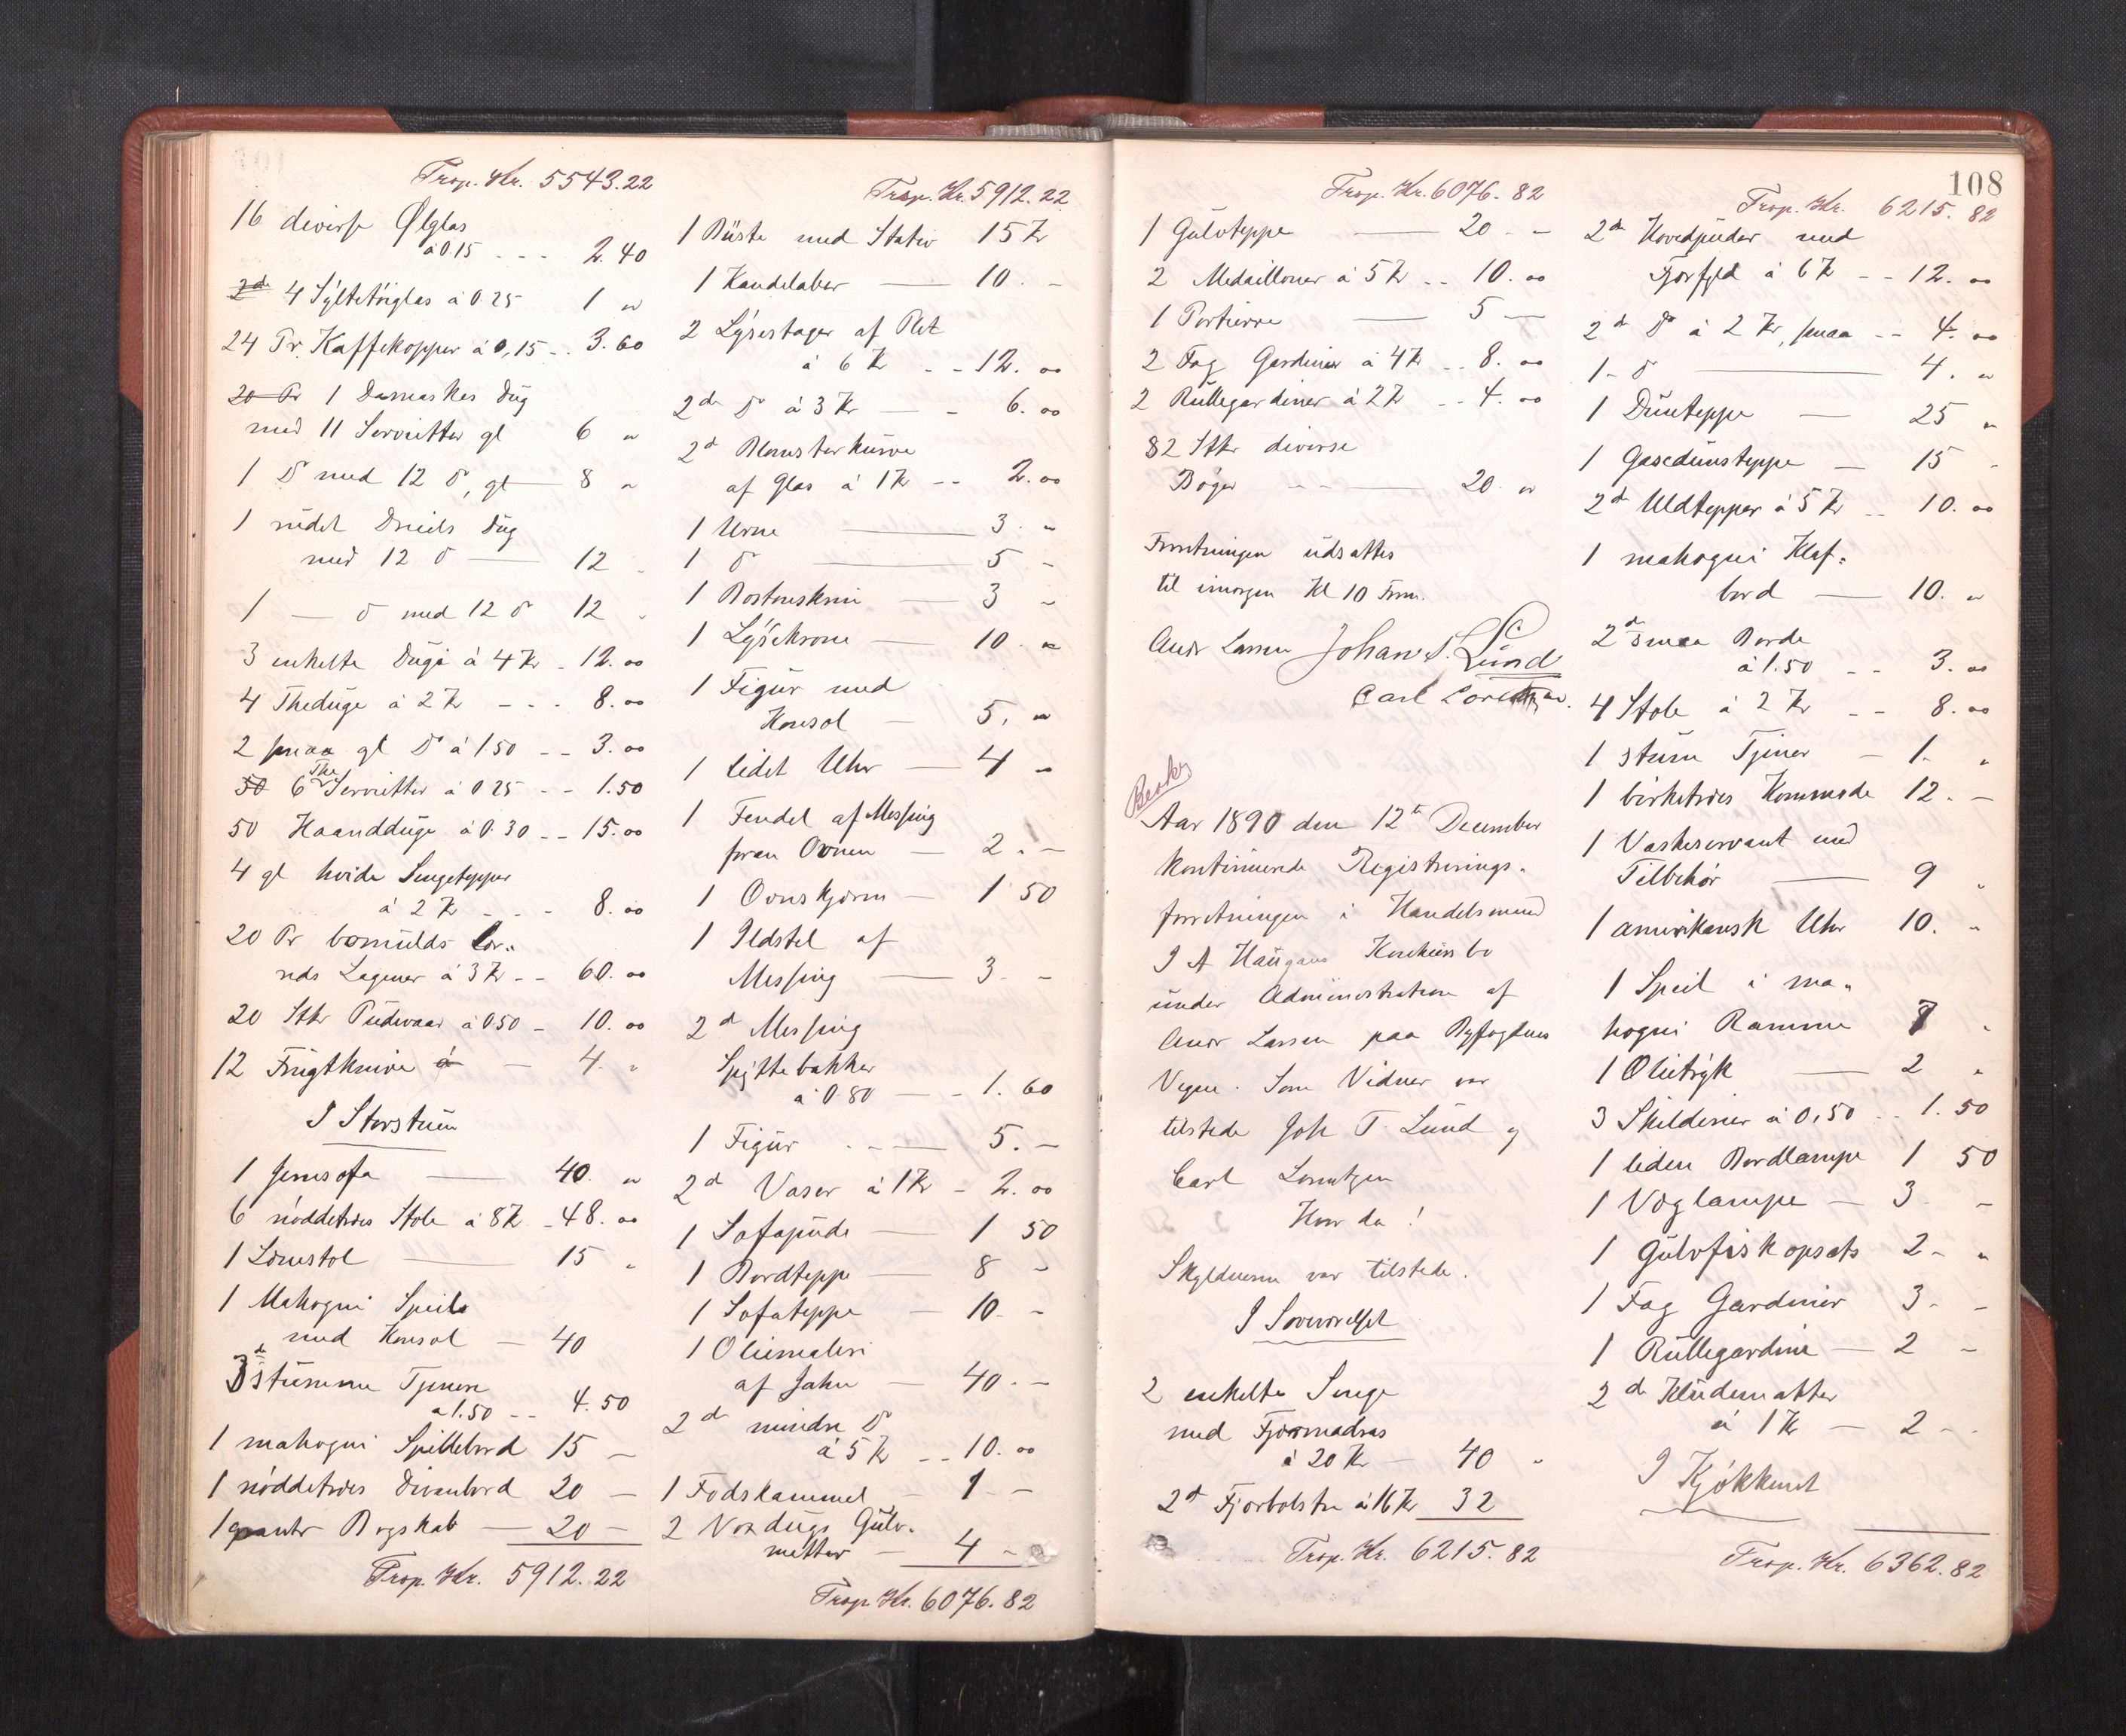 Trsp. Kr. 5543.22
16 diverse Ølglas
à 0.15 - - - 2.40
2 do 4 Syltetøiglas à 0.25 1 "
24 Pr. Kaffekopper à 0,15 - - 3.60
20 Pr 1 Damaskes Dug
med 11 Servietter gl 6 "
1 Do med 12 do, gl — 8 "
1 nidet Dreiels Dug
med 12 do — 12 "
1 — do med 12 do 12 "
3 enkelte Duge à 4 Kr - 12.00
4 Theduge à 2 Kr - - - 8.00
2 smaa gl Do à 1 50 - - 3.00
50 6 The Servietter à 0 25 - - 1.50
50 Haandduge à 0.30 - - 15.00
4 gl hvide Sengetepper
à 2 Kr - - - 8.00
20 Pr bomulds Lær-
reds Lagener à 3 Kr - - 60.00
20 Stkr Pudevaar à 0.50 - 10.00
12 Frugtknive à — 4. "
I Storstuen
1 Jernsofa — 40. "
6 nøddetræes Stole à 8 Kr - 48.00
1 Lænstol — 15 "
1 Mahogni Speil
med Konsol — 40
3 d stumme Tjenere
a 1.50 - - 4.50
1 mahogni Spillebord 15 —
1 nøddetræes Divanbord 20 —
1 Bogskab — 20 —
Trsp. Kr. 5912.22
Trsp. Kr. 5912.22
1 Büste med Stativ 15 Kr
1 Kandelaber — 10. -
2 Lysestager af Plet
à 6 Kr - - 12.00
2 do Do à 3 Kr — - 6.00
2 d Blomsterkurve
af Glas à 1 Kr - - 2.00
1 Urne — 3. "
1 do — 5 -
1 Bostonskrin — 3 -
1 Lysekrone — 10. "
1 Figur med
Konsol — 5. "
1 lidet Uhr — 4 "
1 Fendel af Messing
foran Ovnen — 2. -
1 Ovnskjærm — 1 50
1 Ildstel af
Messing — 3 -
2 d Messing
Spyttebakker
à 0.80 — - 1.60
1 Figur - - — 5. —
2 d Vaser à 1 Kr - 2.00
1 Sofapude — 1 50
1 Bordteppe — 8 -
1 Sofateppe — 10 -
1 Oliemaleri
af Jahn — 40. -
2 d mindre Do
à 5 Kr - - 10.00
1 Fodskammel — 1 -
2 Voxdugs Gulv-
matter — 4 -
Trsp Kr. 6076.82
Trsp. Kr. 6076.82
1 Gulvteppe — 20 - -
2 Medailloner à 5 Kr - - 10.00
1 Portierre — 5 —
2 Fag Gardiner à 4 Kr - - 8.00
2 Rullegardiner à 2 Kr - - 4.00
82 Stkr diverse
Bøger - - — 20 "
Forretningen udsattes
til imorgen Kl 10 Form.
Andr Larsen Johan T. Lund
Carl Lorentzen.
Aar 1890 den 12te December
kontinuerede Registrerings-
forretningen i Handelsmand
I A Haugans Konkursbo
under Administration af
Andr Larsen paa Byfogdens
Vegne. Som Vidner var
tilstede Joh T. Lund og
Carl Lorentzen
Hvor da!
Skyldneren var tilstede.
I Soveværelset
2 enkelte Senge
med Fjærmadras
à 20 Kr — 40 "
2 d Fjærbolstre à 16 Kr 32
Trsp. Kr. 6215.82
108
Trsp. Kr. 6215.82
2 do Hovedpuder med
Fjærfyld à 6 Kr - - 12.00
2 d Do à 2 Kr, smaa - - 4.00
1 - do — 4. "
1 Dunteppe — 25 "
1 Gasedunsteppe — 15 -
2 d Uldtepper à 5 Kr - - 10.00
1 mahogni Klaf-
bord — 10. "
2 d smaa Borde
à 1.50 - - 3.00
4 Stole à 2 Kr - - 8.00
1 stum Tjener — 1. "
1 birketræes Kommode 12. —
1 Vaskeservant med
Tilbehør — 9 "
1 amerikansk Uhr 10. "
1 Speil i ma-
hogni Ramme 7 "
1 Olietryk — 2 "
3 Skilderier à 0,50 - - 1.50
1 liden Bordlampe 1 50
1 Væglampe — 3 -
1 Gulvfiskopsats 2 - "
1 Fag Gardiner 3 - -
1 Rullegardin — 2 -
2 do Kludematter
à 1 Kr — 2 -
I Kjøkkenet
Trsp. Kr. 6362.82